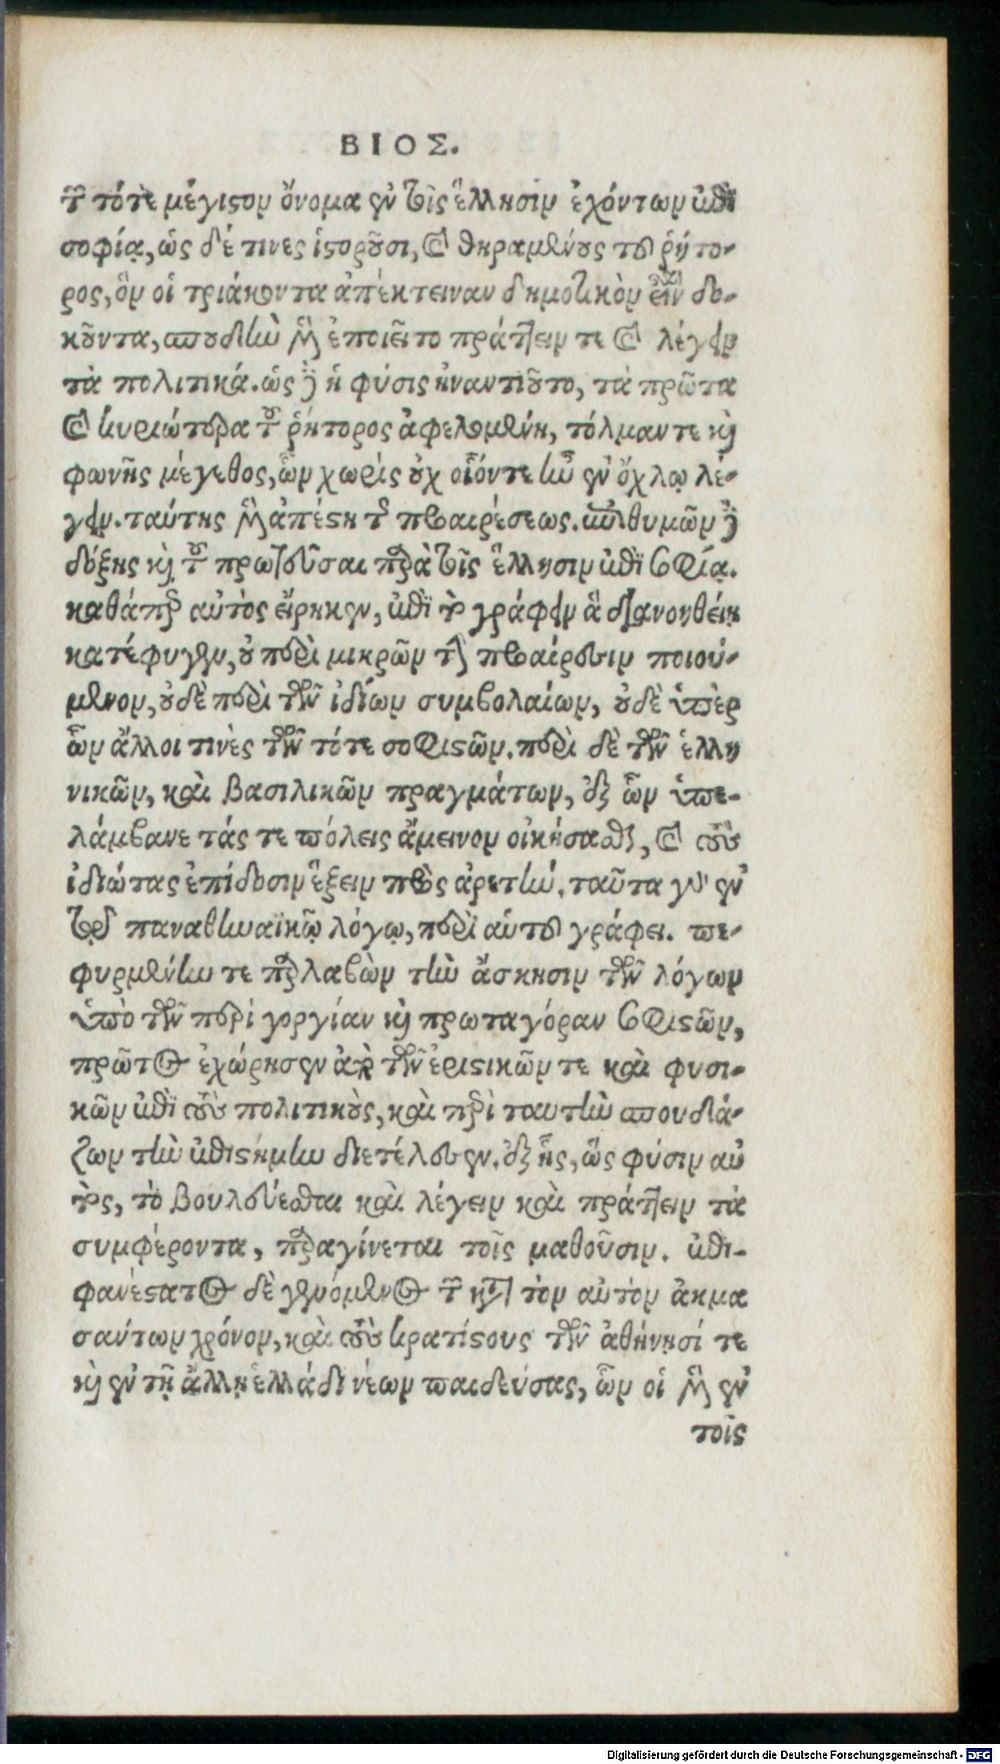 ΒΙΟΣ.
τῶν τότε μέγιστον ὄνομα ἐν τοῖς ἕλλησιν ἐχόντων ἐπὶ
σοφίᾳ, ὡς δέ τινες ἱστοροῦσι, καὶ θηραμένους τοῦ ῥήτο-
ρος, ὃν οἱ τριάκοντα ἀπέκτειναν δημοτικὸν εἶναι δο-
κοῦντα, σπουδὴν μὲν ἐποιεῖτο πράττειν τε καὶ λέγειν
τὰ πολιτικά. ὡς δὲ ἡ φύσις ἠναντιοῦτο, τὰ πρῶτα
καὶ κυριώτερα τοῦ ῥήτορος ἀφελομένη, τόλμαν τε καὶ
φωνῆς μέγεθος, ὧν χωρὶς οὐχ οἷόντε ἦν ἐν ὄχλῳ λέ-
γειν. ταύτης μὲν ἀπέστη τῆς προαιρέσεως. ἐπιθυμῶν δὲ
δόξης καὶ τοῦ πρωτεῦσαι παρὰ τοῖς ἕλλησιν ἐπὶ σοφίᾳ.
καθάπερ αὐτὸς εἴρηκεν, ἐπὶ τὸ γράφειν ἃ διανοηθείη
κατέφυγεν, οὐ περὶ μικρῶν τὴν προαίρεσιν ποιού-
μενον, οὐδὲ περὶ τῶν ἰδίων συμβολαίων, οὐδὲ ὑπὲρ
ὧν ἄλλοι τινὲς τῶν τότε σοφιστῶν. περὶ δὲ τῶν ἑλλη
νικῶν, καὶ βασιλικῶν πραγμάτων, ἐξ ὧν ὑπε-
λάμβανε τάς τε πόλεις ἄμεινον οἰκήσασθαι, καὶ τοὺς
ἰδιώτας ἐπίδοσιν ἕξειν πρὸς ἀρετήν. ταῦτα γὰρ ἐν
τῷ παναθηναϊκῷ λόγῳ, περὶ αὑτοῦ γράφει. πε-
φυρμένην τε παραλαβὼν τὴν ἄσκησιν τῶν λόγων
ὑπὸ τῶν περὶ γοργίαν καὶ πρωταγόραν σοφιστῶν,
πρῶτος ἐχώρησεν ἀπὸ τῶν ἐριστικῶν τε καὶ φυσι-
κῶν ἐπὶ τοὺς πολιτικοὺς, καὶ περὶ ταύτην σπουδά-
ζων τὴν ἐπιστήμην διετέλεσεν. ἐξ ἧς, ὥς φύσιν αὐ
τὸς, τὸ βουλεύεσθαι καὶ λέγειν καὶ πράττειν τὰ
συμφέροντα, παραγίνεται τοῖς μαθοῦσιν. ἐπι-
φανέστατος δὲ γενόμενος τῶν κατὰ τὸν αὐτὸν ἀκμα
σάντων χρόνον, καὶ τοὺς κρατίστους τῶν ἀθήνῃσί τε
καὶ ἐν τῇ ἄλλῃ ἑλλάδι νέων παιδεύσας, ὧν οἱ μὲν ἐν
τοῖς
Digitalisierung gefördert durch die Deutsche Forschungsgemeinschaft - DFG